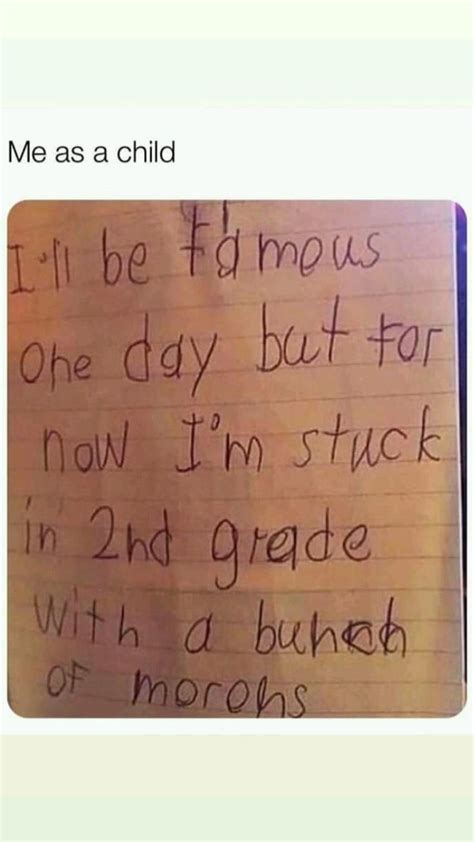 Me as a child
I'll be famous
one day but for
now I'm stuck
in 2nd grade
with a bunch
of morons